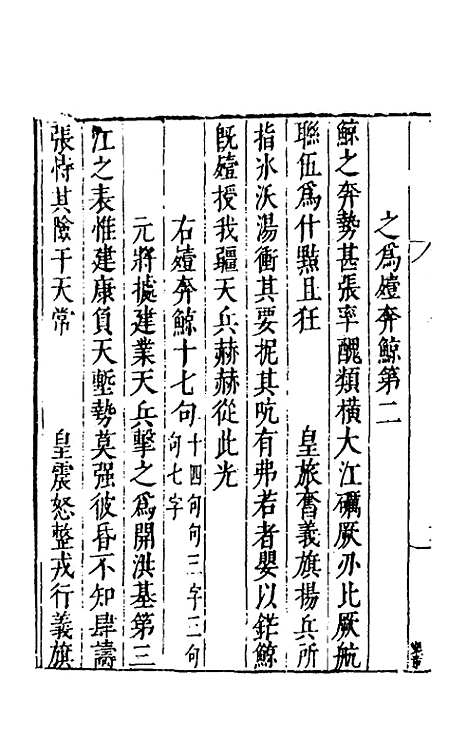 之爲殪奔鯨第二
鯨之奔勢甚張率醜類橫大江礪厥刃比厥航
聯伍爲什黠且狂　皇旅奮義旗揚兵所
指氷沃湯衝其要扼其吭有弗若者嬰以鋩鯨
旣殪授我疆天兵赫赫從此光
右殪奔鯨十七句十四句句三字三句句七字
元將據建業天兵擊之爲開洪基第三
江之表惟建康負天塹勢莫强彼昏不知肆譸
張恃其險干天常　皇震怒整戎行義旗